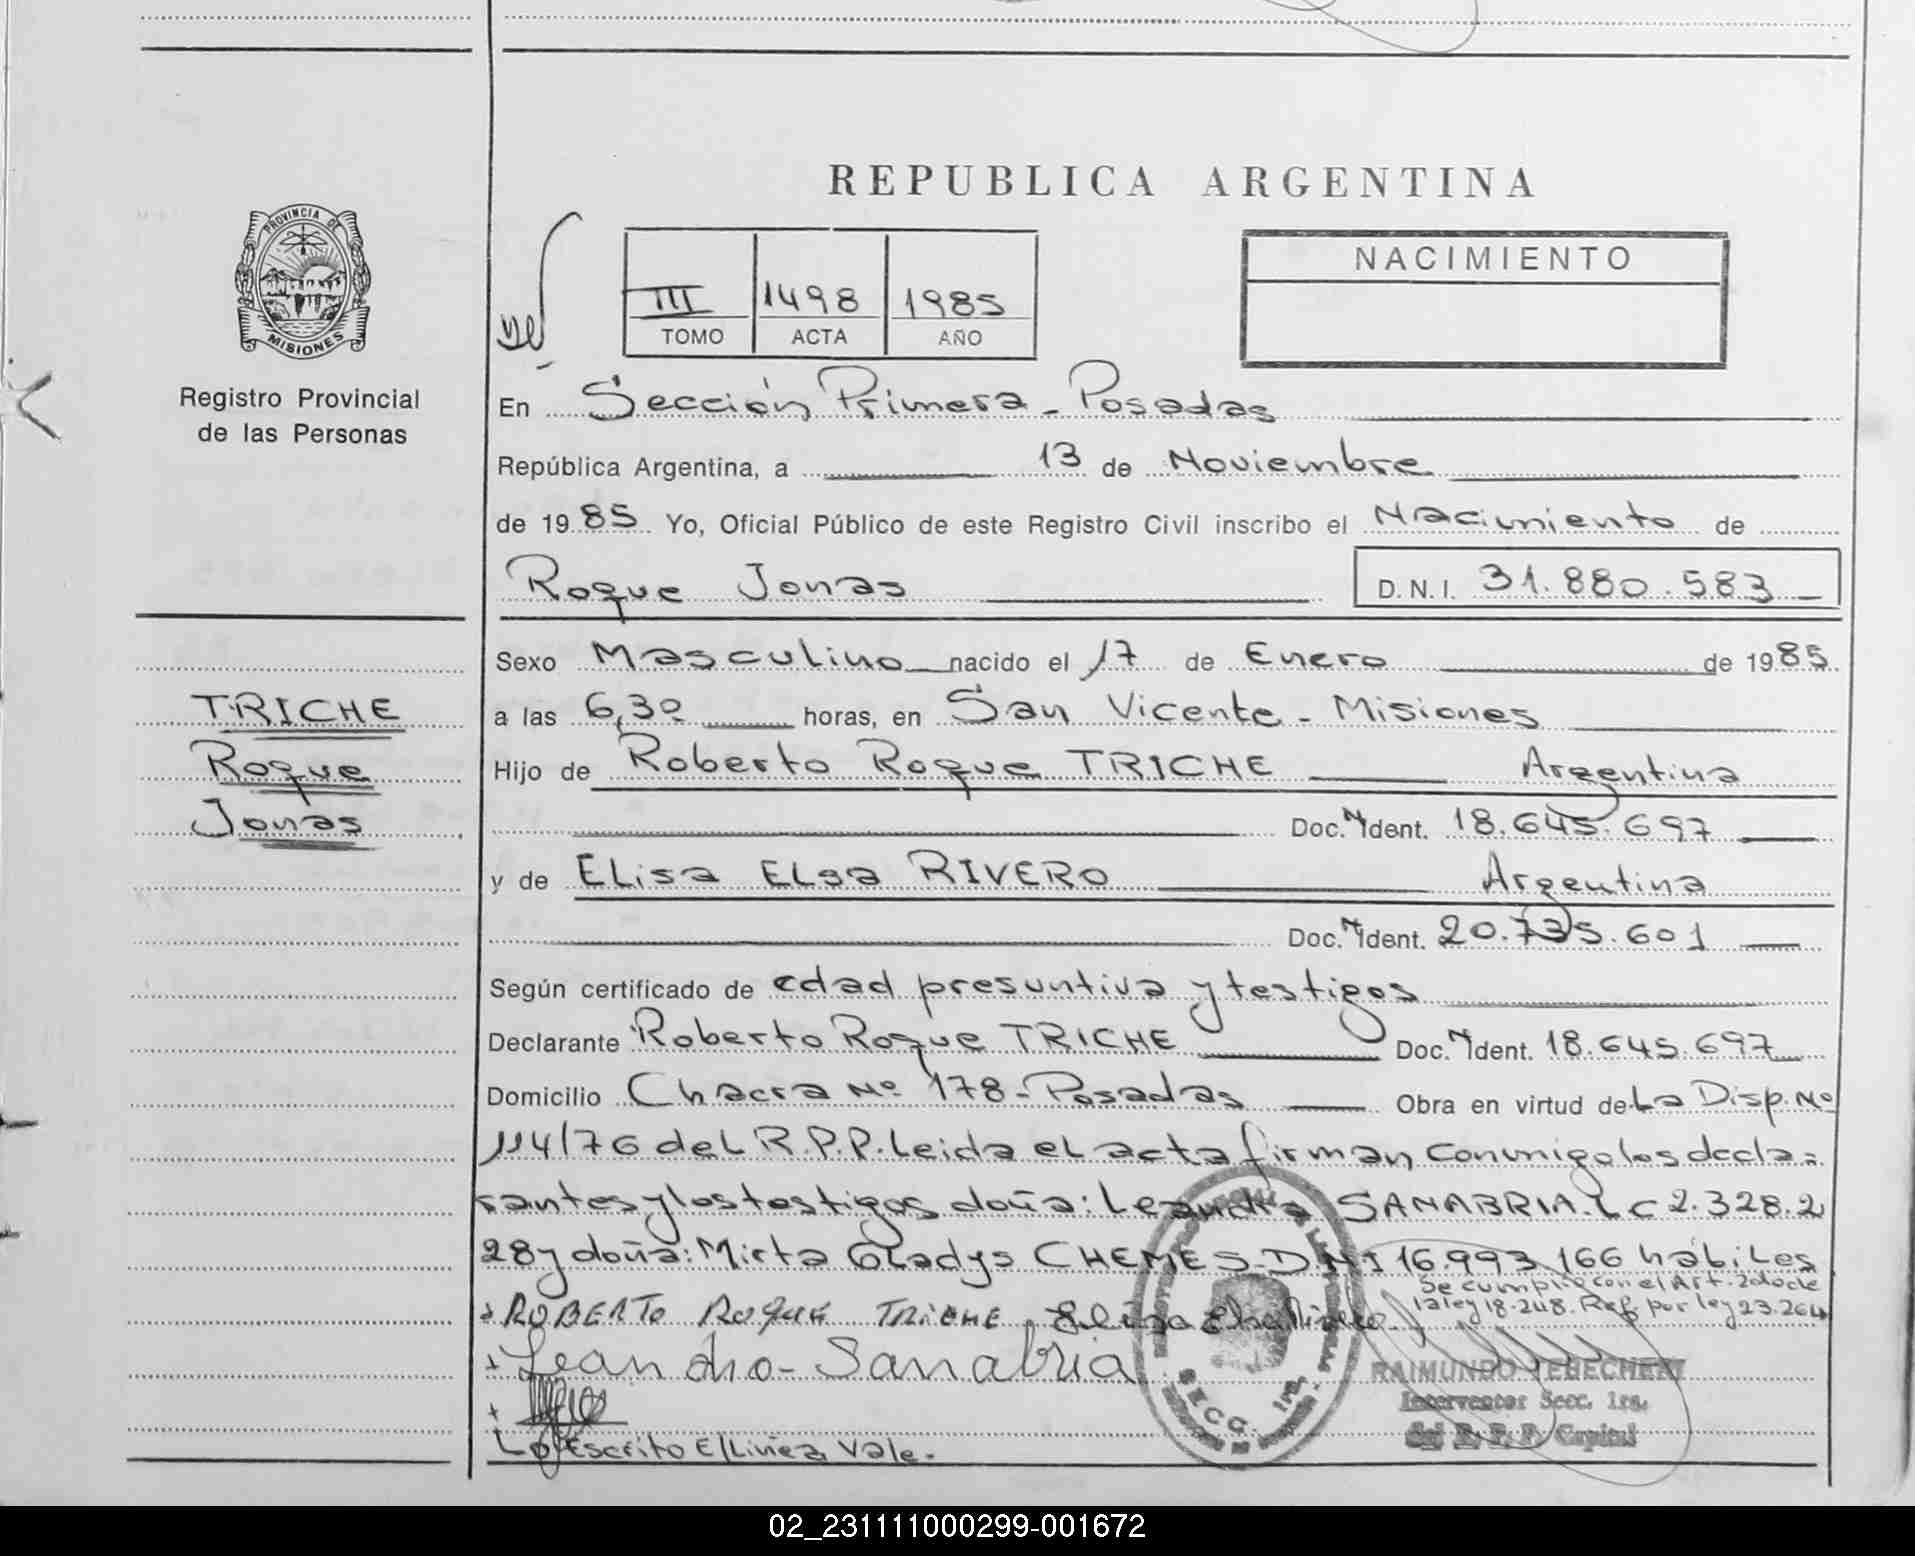 REPUBLICA ARGENTINA
PROVINCIA DE
MISIONES
Registro Provincial
de las Personas
III 1498 1985
TOMO ACTA AÑO
NACIMIENTO
En Sección Primera - Posadas
República Argentina, a 13 de Noviembre
de 1985 Yo, Oficial Público de este Registro Civil inscribo el Nacimiento de
Roque Jonas D.N.I. 31.880.583
Sexo Masculino nacido el 17 de Enero de 1985
TRICHE
Roque
Jonas
a las 6,30 horas, en San Vicente - Misiones
Hijo de Roberto Roque TRICHE Argentina
Doc. N Ident. 18.645.697
y de ELisa ELsa RIVERO Argentina
Doc. N Ident. 20.735.601
Según certificado de edad presuntiva y testigos
Declarante Roberto Roque TRICHE Doc. N Ident. 18.645.697
Domicilio Chacra Nº 178 - Posadas Obra en virtud de La Disp. Nº
114/76 del R.P.P. Leida el acta firman conmigo los decla=
rantes y los testigos doña: Leandra SANABRIA. LC 2.328.2
28 y doña: Mirta Gladys CHEMES - DNI 16.993.166 hábiles
Se cumplió con el Art. 2do de
la ley 18.248. Ref. por ley 23.264
ROBERTO ROQUE TRICHE Elisa Elsa Rivero
Leandro - Sanabria
RAIMUNDO JEBECHERI
Interventor Secc. 1ra.
del R. P. P. Capital
SECC. 1ra.
Lo Escrito E/Linea Vale.
02_231111000299-001672